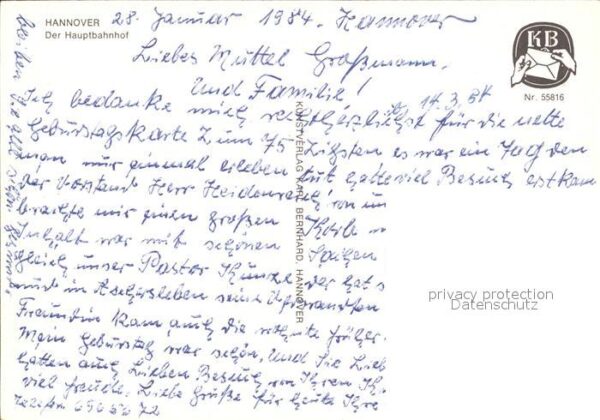 HANNOVER
Der Hauptbahnhof
28. Januar 1984. Hannover
Liebes Muttel Graßmann.
Und Familie!
14.3.84
Ich bedanke mich recht herzlichst für die nette
Geburtstagskarte zum 75 zigsten es war ein Tag den
man nur einmal erleben tut hatte viel Besuch erst kam
der Vorstand Herr Heidenreich von un
brachte mir einen großen Korb
Inhalt war mit schönen Sachen
gleich unser Pastor Kunze der hat s
und in Aschersleben seine
Freundin kam auch die
Mein Geburtstag war schön. Und Sie Lieb
hatten auch Lieben Besuch von Ihrem
viel freude. Liebe Grüße für heute Ihre
bleiben Sie alle schön gesund.
KUNSTVERLAG KARL BERNHARD, HANNOVER
KB
Nr. 55816
privacy protection
Datenschutz